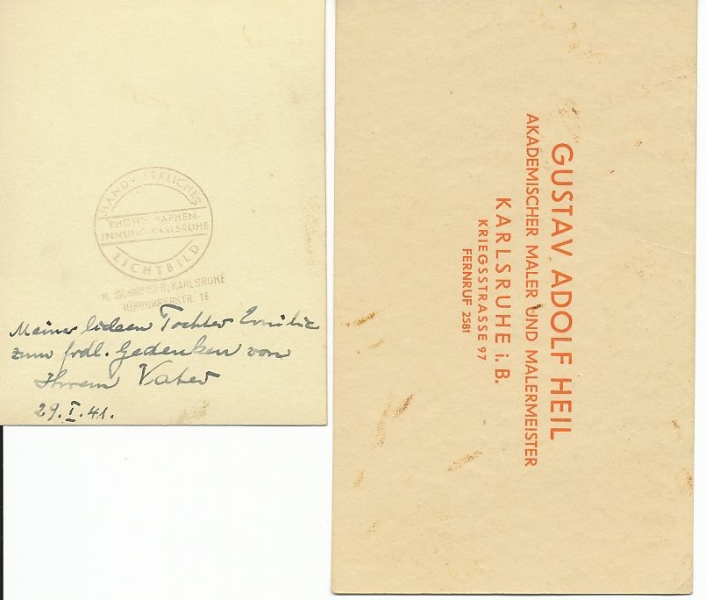 HANDWERKLICHES
PHOTOGRAPHEN-
INNUNG KARLSRUHE
LICHTBILD
KARLSRUHE
STR. 16
Meiner lieben Tochter Emilie
zum frdl. Gedenken von
Ihrem Vater
29. I. 41.
GUSTAV ADOLF HEIL
AKADEMISCHER MALER UND MALERMEISTER
KARLSRUHE i. B.
KRIEGSSTRASSE 97
FERNRUF 2581